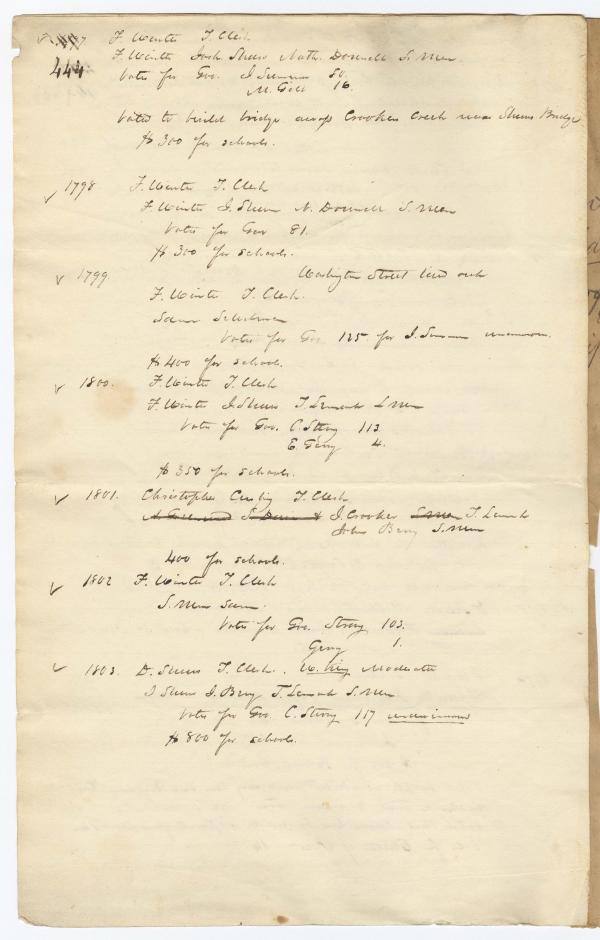 F. Winter T. Clerk
444
F. Winter Josh. Shaw Nath. Donnell S. Men.
Votes for Gov. J. Sumner 50.
M. Gill 16.
Voted to build bridge across Crookers Creek near Shaws Bridge
$300 for schools.
✓ 1798 F. Winter T. Clerk
F. Winter J. Shaw N. Donnell S. Men
Votes for Gov 81.
$300 for schools.
✓ 1799 Washington Street laid out
F. Winter T. Clerk.
Same Selectmen
Votes for Gov. 125 for J. Sumner unanimous.
$400 for schools.
✓ 1800. F. Winter T. Clerk
F. Winter J. Shaw T. Lemont S. Men
Votes for Gov. C. Strong 113.
E. Gerry 4.
$350 for schools.
✓ 1801. Christopher Cushing T. Clerk
J. Crooker S. Men T. Lemont
John Berry S. Men
400 for schools.
✓ 1802 F. Winter T. Clerk
S. Men Same.
Votes for Gov. Strong 103.
Gerry 1.
✓ 1803. D. Shaw T. Clerk. W. King Moderator
J Shaw J. Berry T. Lemont S. Men
Votes for Gov. C. Strong 117 unanimous
$800 for schools.